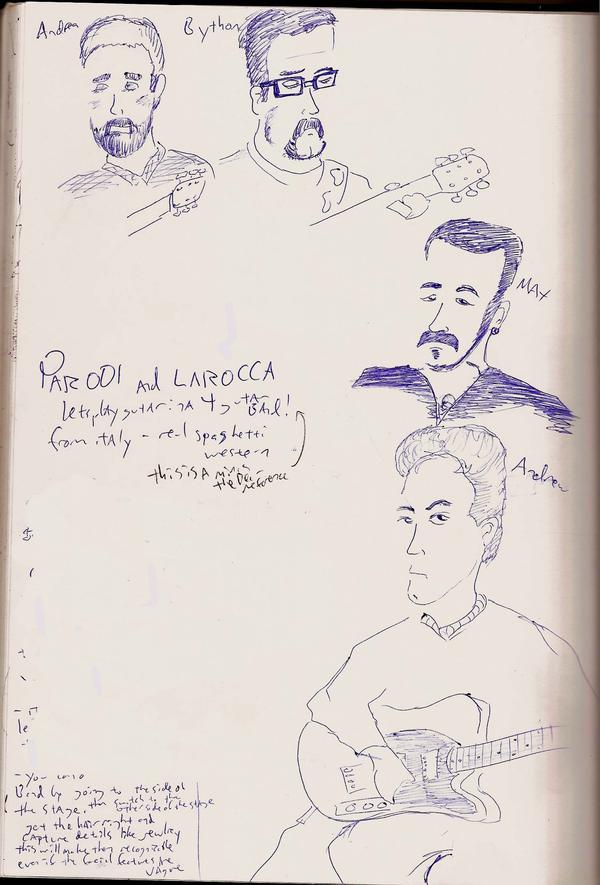 Andrea
Bython
MAX
PARODI and LAROCCA
Lets play guitar in a 4 guitar Band!
from italy - real spaghetti
western
this is a
reference
Andrea
- you
Band by going to the side of
the stage, then switch to the
other side of the stage
get the hair right and
capture details like jewelry
this will make them recognizable
even if the facial features are
vague